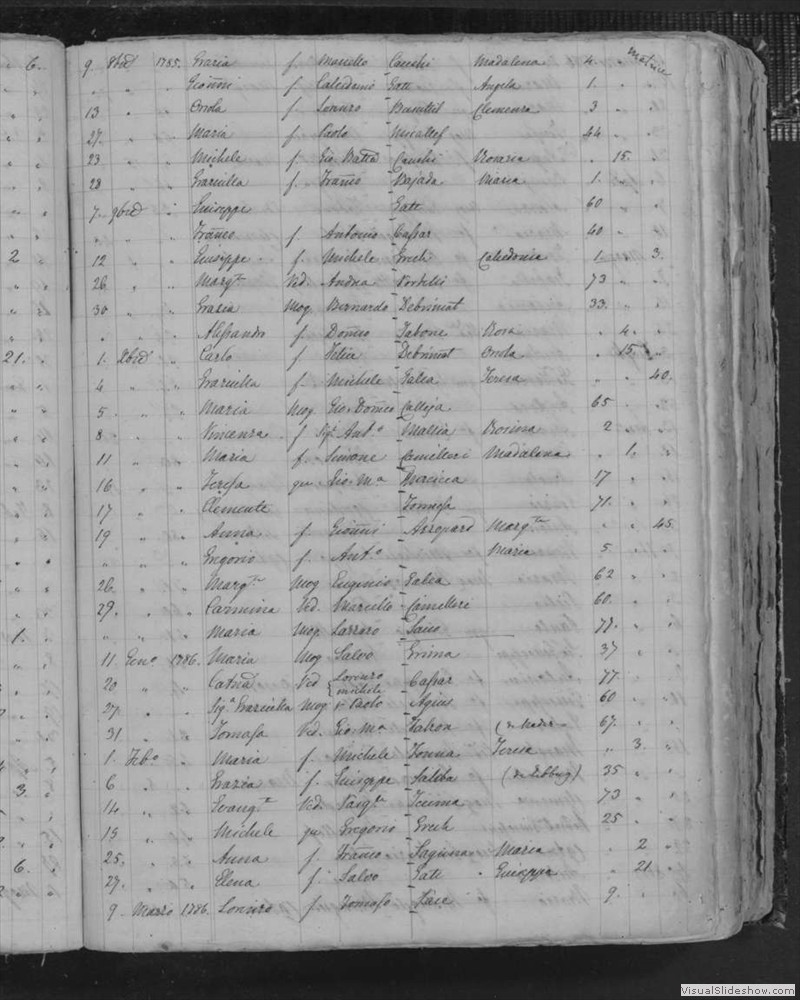 6. 9. 8bre 1785. Grazia f. Marcello Cauchi Madalena 4. " Matrice
" " " Giõnni f. Calcidonio Gatt Angela 1. "
13 " " Orsola f. Lorenzo Clemenza 3 "
27. " " Maria f. Paolo Micallef 44 "
23 " " Michele f. Gio Batta Cauchi Rosaria . 15.
28 " " Graziulla f. Franco Bajada Maria 1. "
7. 9bre " Giuseppe Gatt 60 "
" " " Franco f. Antonio Cassar 40 "
2 12 " " Giuseppe f. Michele Grech Calcidonia 1. 3.
26. " " Margta Ved. Andrea 73 "
30 " " Grazia Mog. Bernardo Debrincat 33. "
" " " Alessandro f. Domco Tabone Rosa . 4.
21. 1. Xbre " Carlo f. Felice Debrincat Orsola . 15.
4 " " Graziulla f. Michele Galea Teresa " " 40.
5 " " Maria Mog. Gio Domco Calleja 65
8 " " Vincenza f. Sigr Anto Mallia Rosina 2
11 " " Maria f. Simone Camilleri Madalena . 1.
16 " " Teresa qu Gio Ma 17
17 " " Clemente 71.
19 " " Anna f. Giõnni Azzopardi Margta " " 45.
" " " Gregorio f. Anto Maria 5
26. " " Margta Mog Eugenio Galea 62
29. " " Carmina Ved. Marcello Camilleri 60.
1. " " " Maria Mog. Lazzaro 77.
11 Geno 1786. Maria Mog Salvo Grima 37
20 " " Catna Ved { Lorenzo michele Cassar 77.
27. " " Siga Graziulla Mog Sr Paolo Agius 60
31 " " Tomasa Ved. Gio Ma Falzon 67.
1. Febo " Maria f. Michele Tonna Teresa " 3.
3. 6 " " Grazia f. Giuseppe Saliba (da Zebbug) 35
14 " " Evangta Ved. 73
15 " " Michele qu Gregorio Grech 25
25. " " Anna f. Franco Laguna Maria . 2
6. 27. " " Elena f. Salvo Gatt Giuseppa . 21.
9 Marzo 1786. Lorenzo f. Tomaso 9.
VisualSlideshow.com